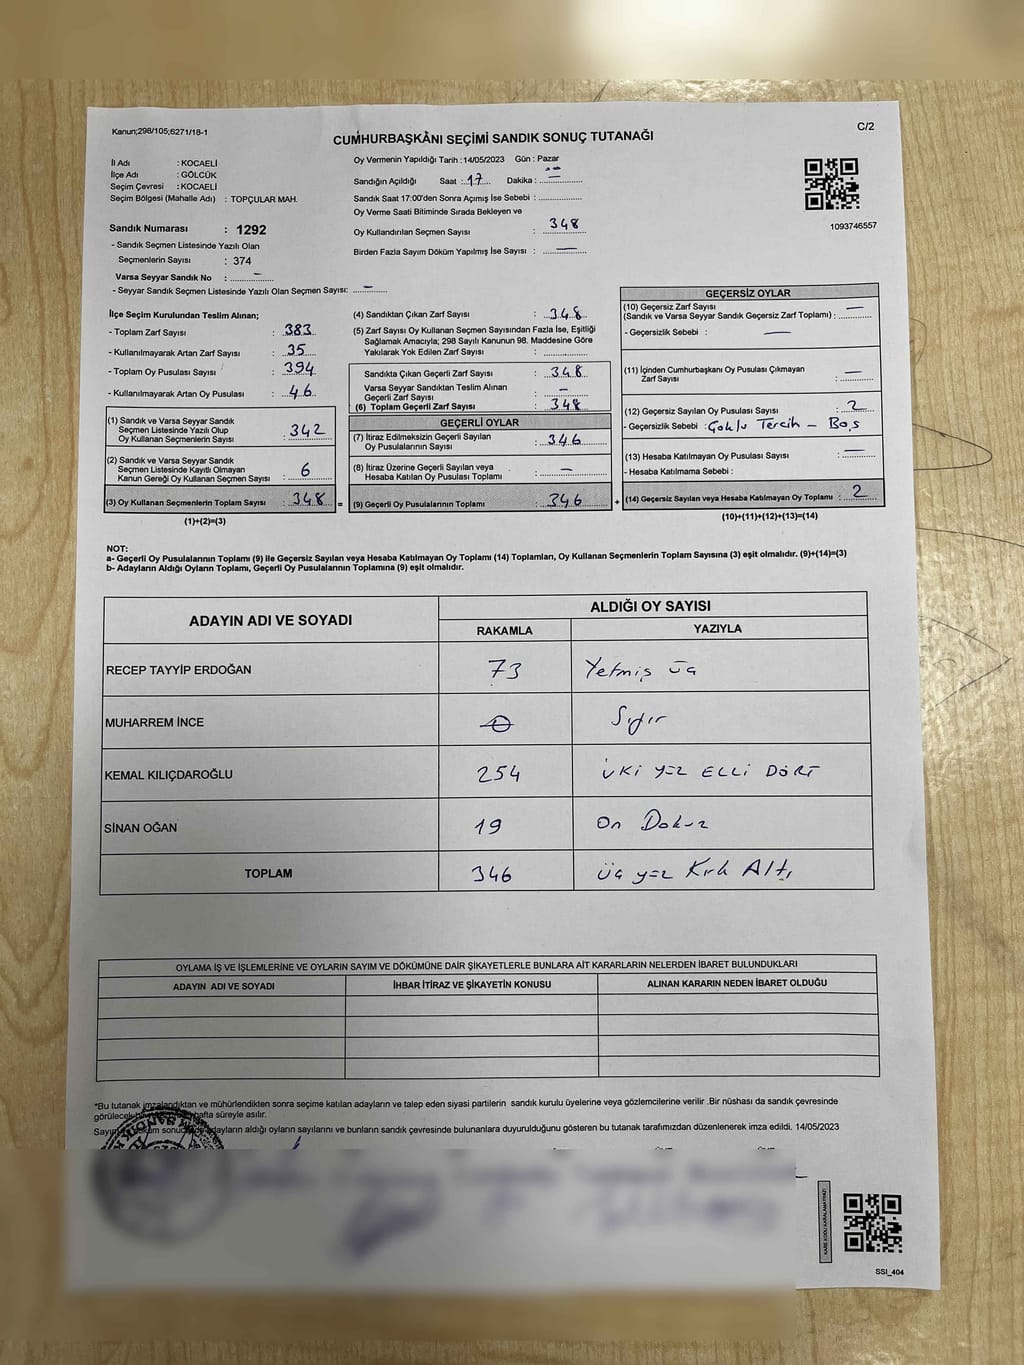 Kanun;298/105;6271/18-1
C/2
CUMHURBAŞKANI SEÇİMİ SANDIK SONUÇ TUTANAĞI
İl Adı : KOCAELİ
İlçe Adı : GÖLCÜK
Seçim Çevresi : KOCAELİ
Seçim Bölgesi (Mahalle Adı) : TOPÇULAR MAH.
Sandık Numarası : 1292
- Sandık Seçmen Listesinde Yazılı Olan
Seçmenlerin Sayısı : 374
Varsa Seyyar Sandık No : –
- Seyyar Sandık Seçmen Listesinde Yazılı Olan Seçmen Sayısı: –
Oy Vermenin Yapıldığı Tarih : 14/05/2023 Gün : Pazar
Sandığın Açıldığı Saat : 17 Dakika : –
Sandık Saat 17:00'den Sonra Açımış İse Sebebi :
Oy Verme Saati Bitiminde Sırada Bekleyen ve
Oy Kullandırılan Seçmen Sayısı : 348
Birden Fazla Sayım Döküm Yapılmış İse Sayısı : —
1093746557
İlçe Seçim Kurulundan Teslim Alınan;
- Toplam Zarf Sayısı : 383
- Kullanılmayarak Artan Zarf Sayısı : 35
- Toplam Oy Pusulası Sayısı : 394
- Kullanılmayarak Artan Oy Pusulası : 46
(1) Sandık ve Varsa Seyyar Sandık
Seçmen Listesinde Yazılı Olup
Oy Kullanan Seçmenlerin Sayısı : 342
(2) Sandık ve Varsa Seyyar Sandık
Seçmen Listesinde Kayıtlı Olmayan
Kanun Gereği Oy Kullanan Seçmen Sayısı : 6
(3) Oy Kullanan Seçmenlerin Toplam Sayısı : 348 =
(1)+(2)=(3)
(4) Sandıktan Çıkan Zarf Sayısı : 348
(5) Zarf Sayısı Oy Kullanan Seçmen Sayısından Fazla İse, Eşitliği
Sağlamak Amacıyla; 298 Sayılı Kanunun 98. Maddesine Göre
Yakılarak Yok Edilen Zarf Sayısı :
Sandıkta Çıkan Geçerli Zarf Sayısı : 348
Varsa Seyyar Sandıktan Teslim Alınan
Geçerli Zarf Sayısı : –
(6) Toplam Geçerli Zarf Sayısı : 348
GEÇERLİ OYLAR
(7) İtiraz Edilmeksizin Geçerli Sayılan
Oy Pusulalarının Sayısı : 346
(8) İtiraz Üzerine Geçerli Sayılan veya
Hesaba Katılan Oy Pusulası Toplamı : –
(9) Geçerli Oy Pusulalarının Toplamı : 346 +
GEÇERSİZ OYLAR
(10) Geçersiz Zarf Sayısı
(Sandık ve Varsa Seyyar Sandık Geçersiz Zarf Toplamı) : —
- Geçersizlik Sebebi : —
(11) İçinden Cumhurbaşkanı Oy Pusulası Çıkmayan
Zarf Sayısı : —
(12) Geçersiz Sayılan Oy Pusulası Sayısı : 2
- Geçersizlik Sebebi : Çoklu Tercih – Boş
(13) Hesaba Katılmayan Oy Pusulası Sayısı : —
- Hesaba Katılmama Sebebi :
(14) Geçersiz Sayılan veya Hesaba Katılmayan Oy Toplamı : 2
(10)+(11)+(12)+(13)=(14)
NOT:
a- Geçerli Oy Pusulalarının Toplamı (9) ile Geçersiz Sayılan veya Hesaba Katılmayan Oy Toplamı (14) Toplamları, Oy Kullanan Seçmenlerin Toplam Sayısına (3) eşit olmalıdır. (9)+(14)=(3)
b- Adayların Aldığı Oyların Toplamı, Geçerli Oy Pusulalarının Toplamına (9) eşit olmalıdır.
ADAYIN ADI VE SOYADI ALDIĞI OY SAYISI
RAKAMLA YAZIYLA
RECEP TAYYİP ERDOĞAN 73 Yetmiş üç
MUHARREM İNCE 0 Sıfır
KEMAL KILIÇDAROĞLU 254 İki yüz ELLİ DÖRT
SİNAN OĞAN 19 On Dokuz
TOPLAM 346 üç yüz Kırk Altı
OYLAMA İŞ VE İŞLEMLERİNE VE OYLARIN SAYIM VE DÖKÜMÜNE DAİR ŞİKAYETLERLE BUNLARA AİT KARARLARIN NELERDEN İBARET BULUNDUKLARI
ADAYIN ADI VE SOYADI İHBAR İTİRAZ VE ŞİKAYETİN KONUSU ALINAN KARARIN NEDEN İBARET OLDUĞU
*Bu tutanak imzalandıktan ve mühürlendikten sonra seçime katılan adayların ve talep eden siyasi partilerin sandık kurulu üyelerine veya gözlemcilerine verilir .Bir nüshası da sandık çevresinde
görülecek hafta süreyle asılır.
Sayım adayların aldığı oyların sayılarını ve bunların sandık çevresinde bulunanlara duyurulduğunu gösteren bu tutanak tarafımızdan düzenlenerek imza edildi. 14/05/2023
KARE KODU KARALAMAYINIZ!
SSI_404